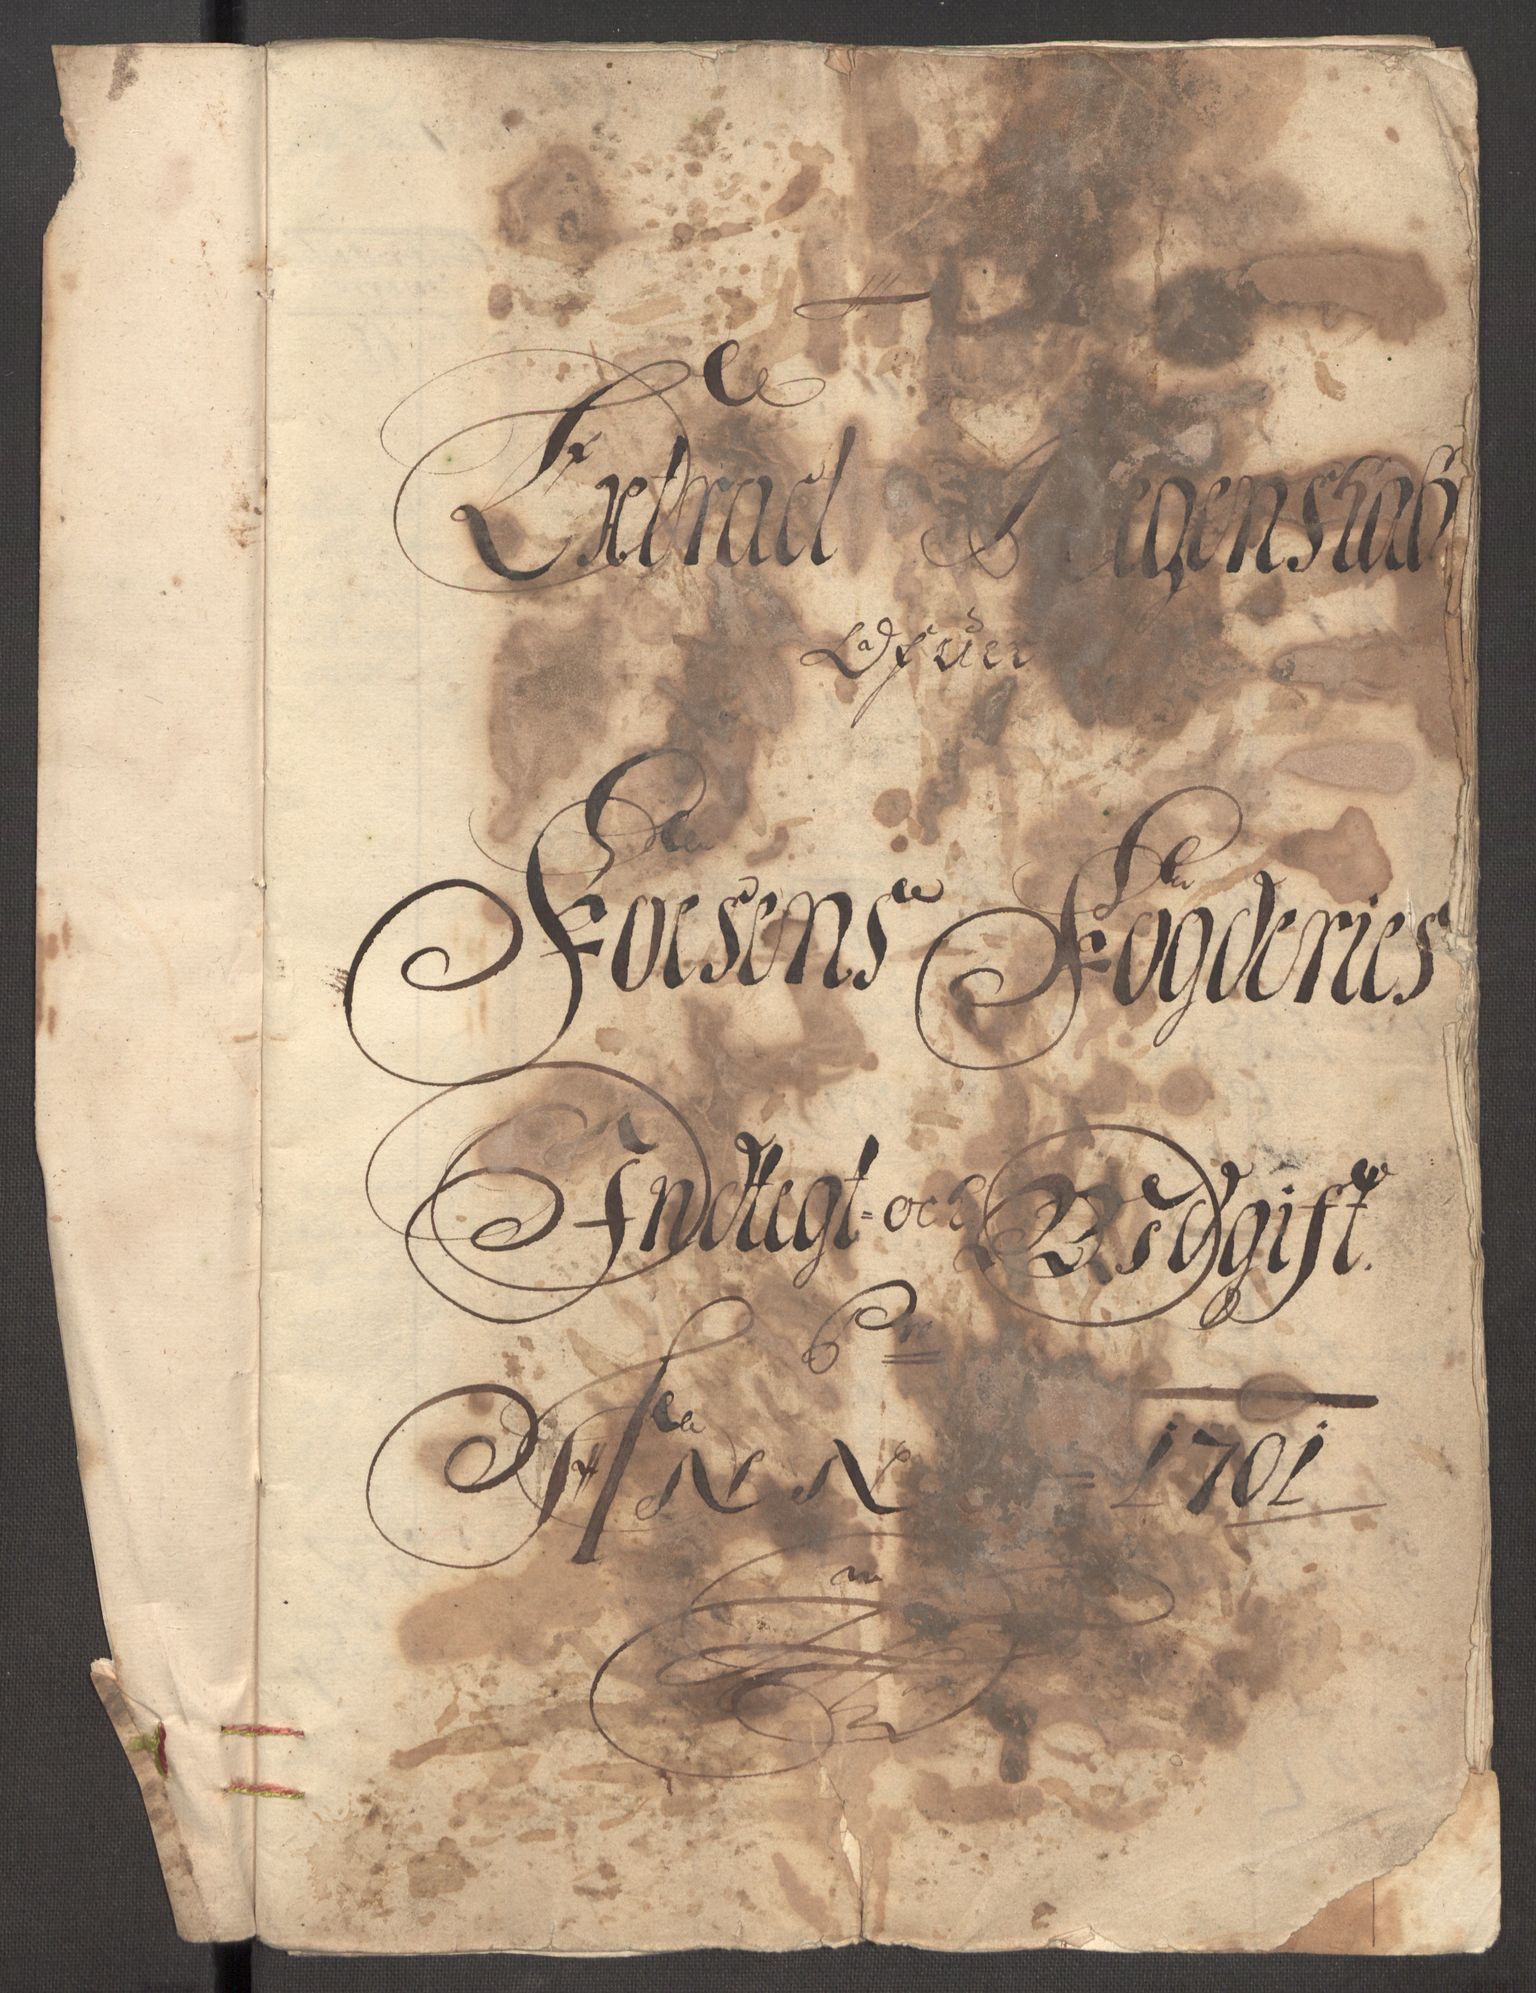 Extract Regenskab
Ofuer
Foesens Fogderies
Indtegt = och Vdgift.
Pro
Anno = 1701